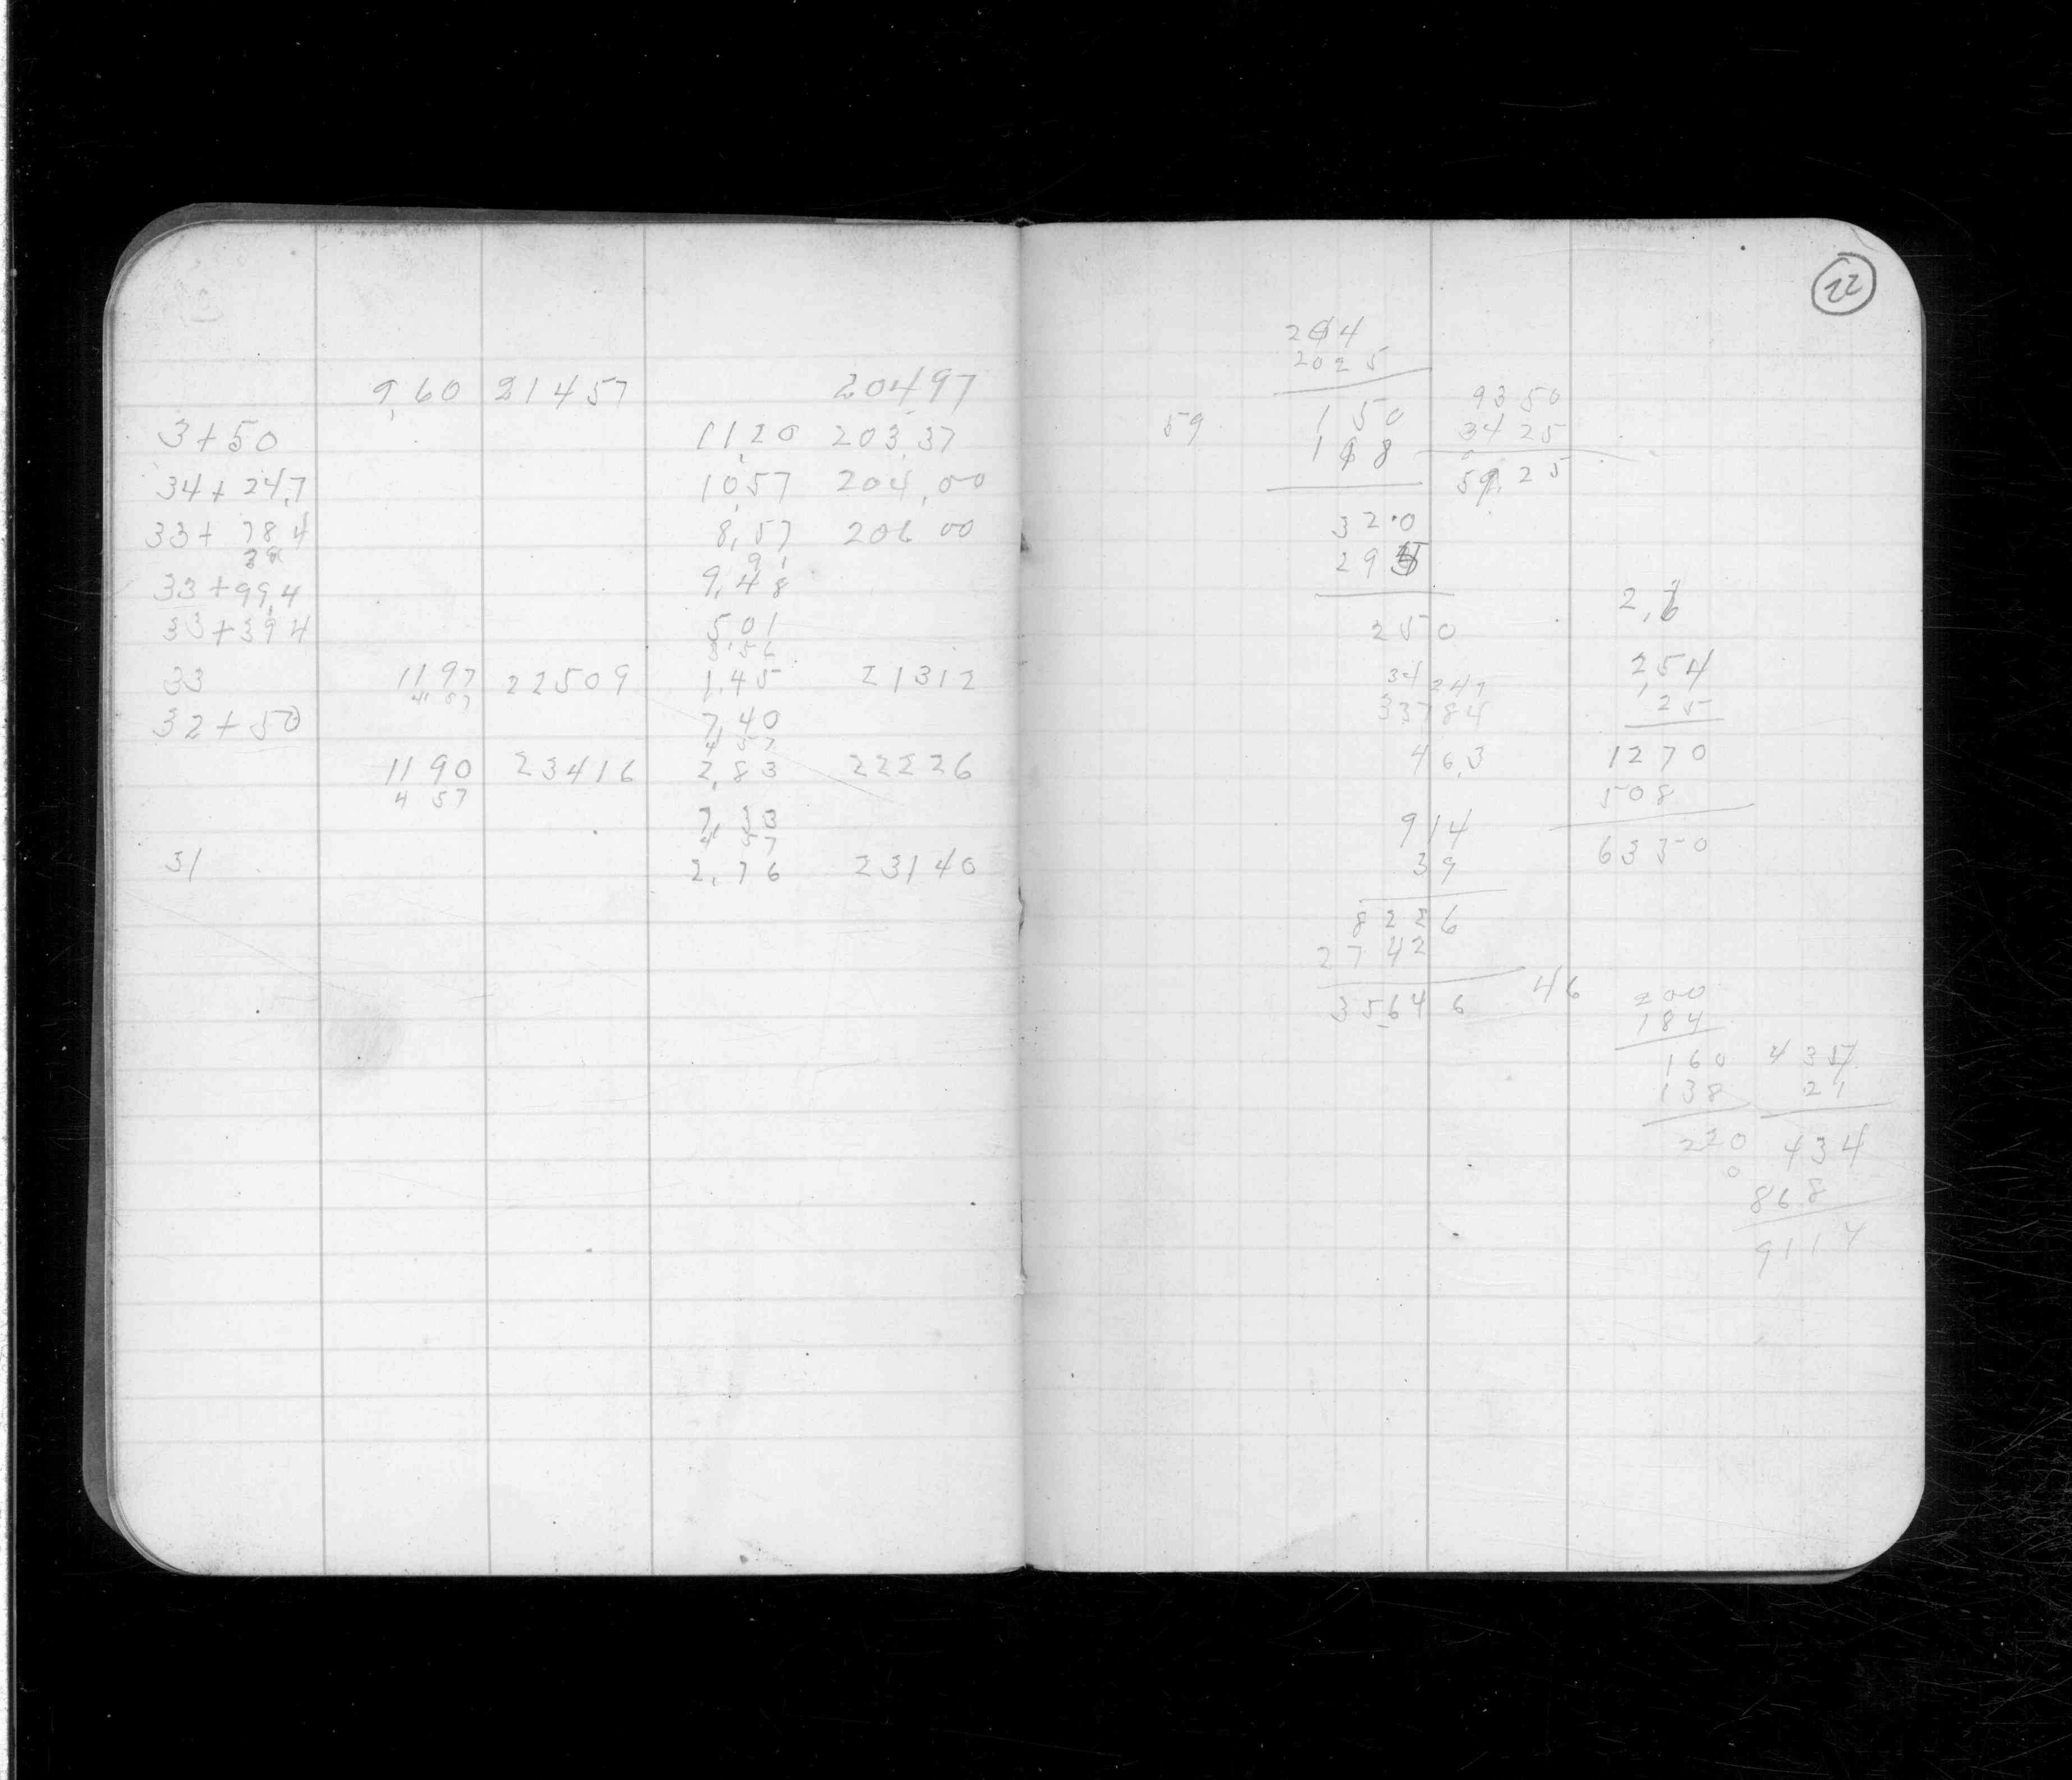 9,60 21457 20497
3+50 11,20 203,37
34+24,7 10,57 204,00
33+ 78 4 8,57 206 00
91
33+99,4 9,48
33+394 5,01
3,56
33 1197 22509 1,45 21312
4 57
32+50 7,40
4 57
1190 23416 2,83 22226
4 57
7,33
4 57
31 2,76 23140
22
204
2025
59 150 9350
118 3425
5925
32.0
295
250
34 247
33784
46,3
914
39
8226
2742
35646
2,6
254
,25
1270
508
6350
46
200
184
160
138
220
0
434
21
434
868
9114